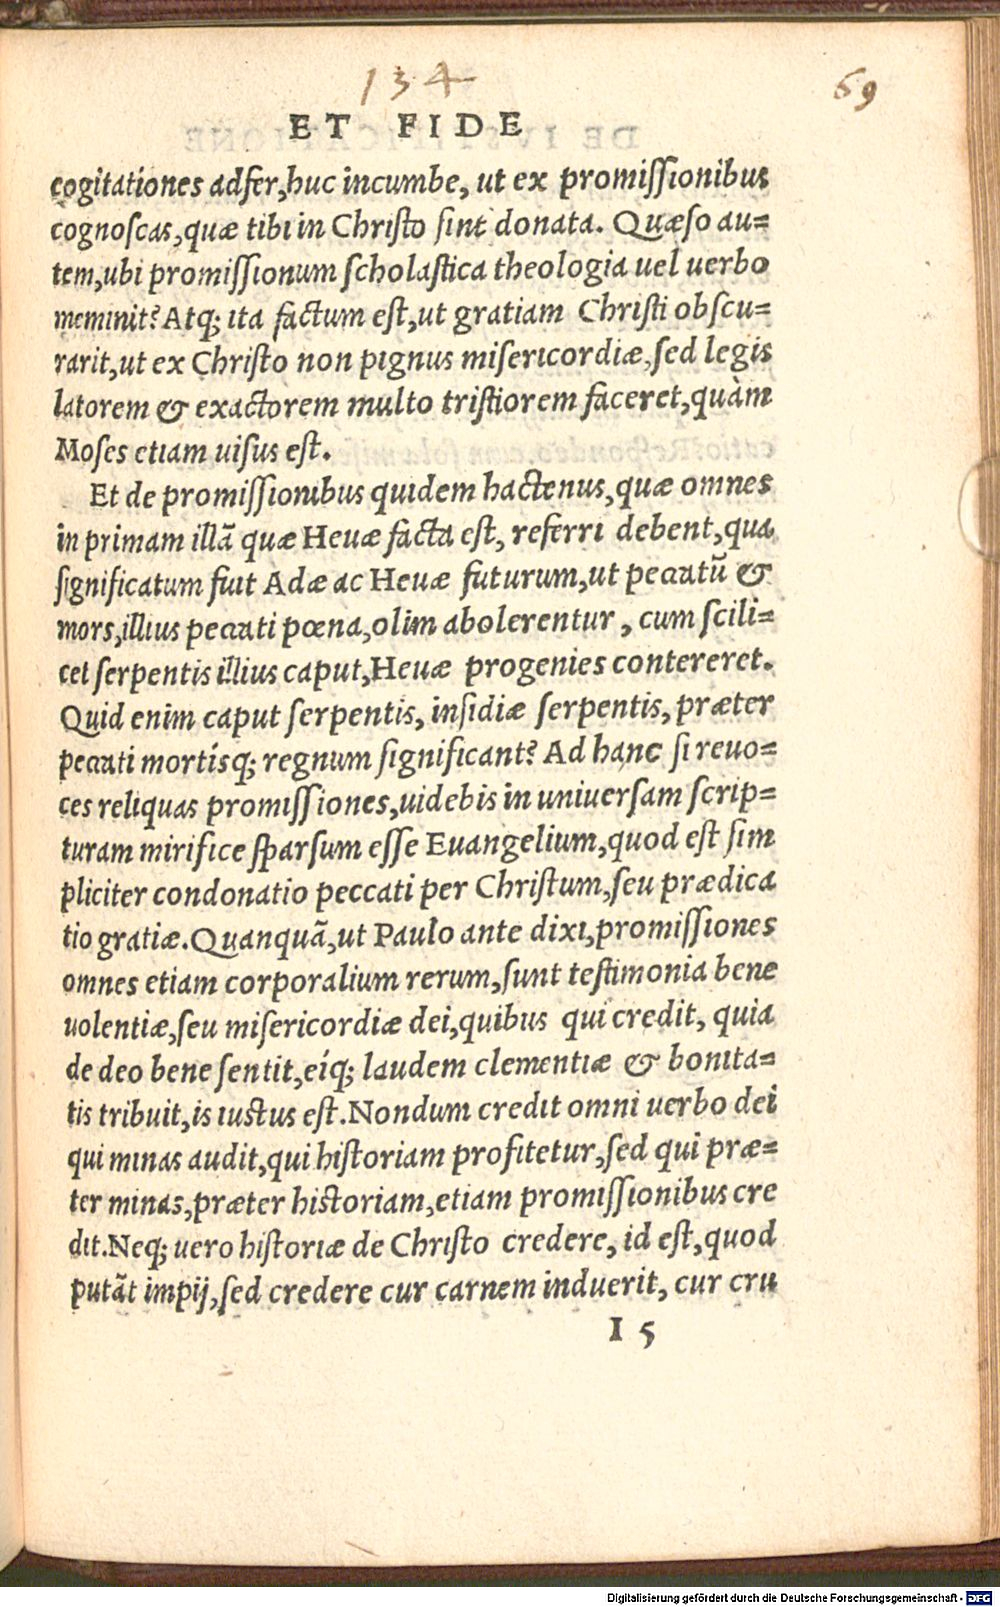 134
69
ET FIDE
cogitationes adfer,huc incumbe, ut ex promissionibus
cognoscas,quæ tibi in Christo sint donata. Quæso au=
tem,ubi promissionum scholastica theologia uel uerbo
meminit? Atq; ita factum est,ut gratiam Christi obscu=
rarit,ut ex Christo non pignus misericordiæ,sed legis
latorem & exactorem multo tristiorem faceret,quàm
Moses etiam uisus est.
Et de promissionibus quidem hactenus,quæ omnes
in primam illã quæ Heuæ facta est, referri debent,qua
significatum fuit Adæ ac Heuæ futurum,ut peccatũ &
mors,illius peccati pœna,olim abolerentur, cum scili=
cet serpentis illius caput,Heuæ progenies contereret.
Quid enim caput serpentis, insidiæ serpentis, præter
peccati mortísq; regnum significant? Ad hanc si reuo=
ces reliquas promissiones,uidebis in uniuersam scrip=
turam mirifice sparsum esse Euangelium,quod est sim
pliciter condonatio peccati per Christum,seu prædica
tio gratiæ.Quanquã,ut Paulo ante dixi,promissiones
omnes etiam corporalium rerum,sunt testimonia bene
uolentiæ,seu misericordiæ dei,quibus qui credit, quia
de deo bene sentit,eíq; laudem clementiæ & bonita=
tis tribuit,is iustus est.Nondum credit omni uerbo dei
qui minas audit,qui historiam profitetur,sed qui præ=
ter minas,præter historiam,etiam promissionibus cre
dit.Neq; uero historiæ de Christo credere, id est,quod
putãt impij,sed credere cur carnem induerit, cur cru
I 5
Digitalisierung gefördert durch die Deutsche Forschungsgemeinschaft - DFG